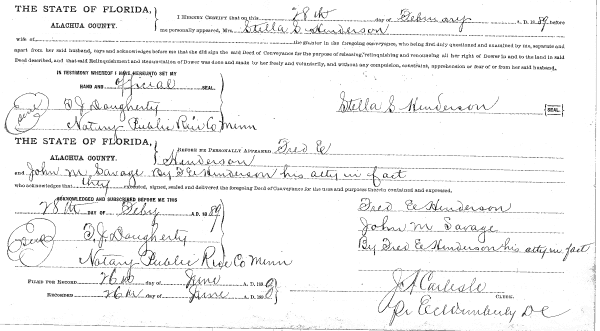 THE STATE OF FLORIDA,
ALACHUA COUNTY.
I HEREBY CERTIFY that on this 28th day of February A. D. 1889 before
me personally appeared, Mrs. Stella S. Henderson
wife of the grantor in the foregoing conveyance, who being first duly questioned and examined by me, separate and
apart from her said husband, says and acknowledges before me that she did sign the said Deed of Conveyance for the purpose of releasing, relinquishing and renouncing all her right of Dower in and to the land in said
Deed described, and that said Relinquishment and Renunciation of Dower was done and made by her freely and voluntarily, and without any compulsion, constraint, apprehension or fear of or from her said husband.
IN TESTIMONY WHEREOF I HAVE HEREUNTO SET MY
HAND AND official SEAL.
Seal
T. J. Daugherty
Notary Public Rice Co Minn
Stella S Henderson
SEAL
THE STATE OF FLORIDA,
ALACHUA COUNTY.
BEFORE ME PERSONALLY APPEARED Fred E
Henderson
and John M. Savage By F E Henderson his atty in fact
who acknowledges that they executed, signed, sealed and delivered the foregoing Deed of Conveyance for the uses and purposes therein contained and expressed.
ACKNOWLEDGED AND SUBSCRIBED BEFORE ME THIS
28th DAY OF Feby A. D. 1889
Seal
T. J. Daugherty
Notary Public Rice Co Minn
Fred E Henderson
John M. Savage
By Fred E Henderson his atty in fact
FILED FOR RECORD 26th day of June A. D. 189
RECORDED 26th day of June A. D. 189
J A Carlisle
CLERK.